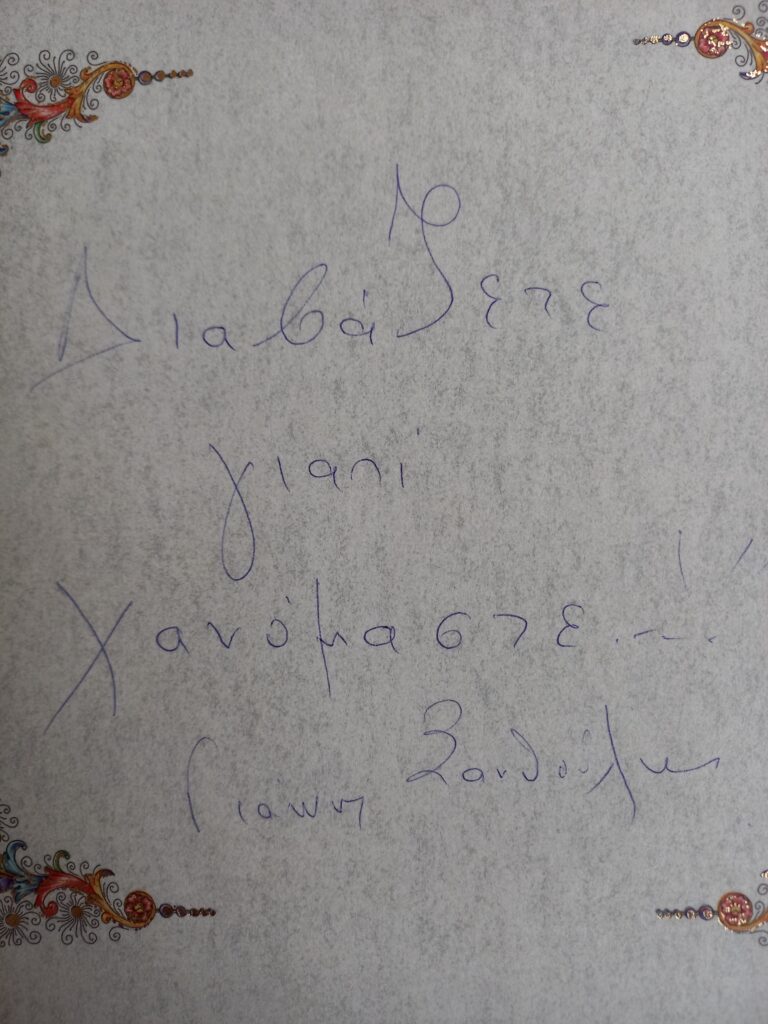 Διαβάζετε
γιατί
χανόμαστε...!!
Γιάννη Ξανθούλη